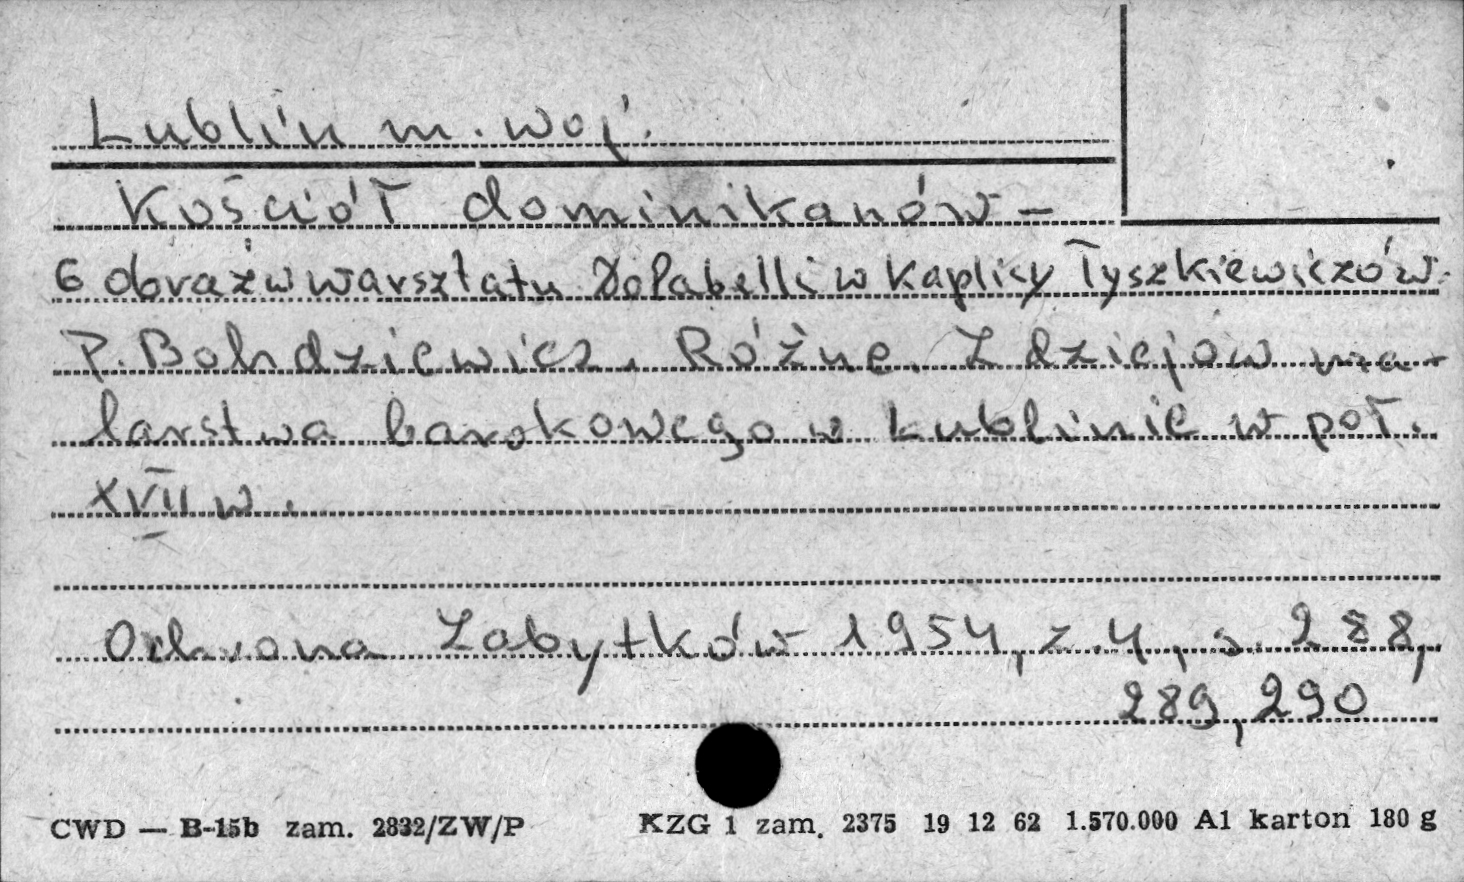 Lublin m. woj.
Kościół dominikanów –
6 obrazów warsztatu Dolabelli w kaplicy Tyszkiewiczów.
P. Bohdziewicz. Różne. Z dziejów ma-
larstwa barokowego w Lublinie w poł.
XVII w.
Ochrona Zabytków 1954, z. 4, s. 288,
289, 290
CWD — B-15b zam. 2832/ZW/P KZG 1 zam. 2375 19 12 62 1.570.000 A1 karton 180 g